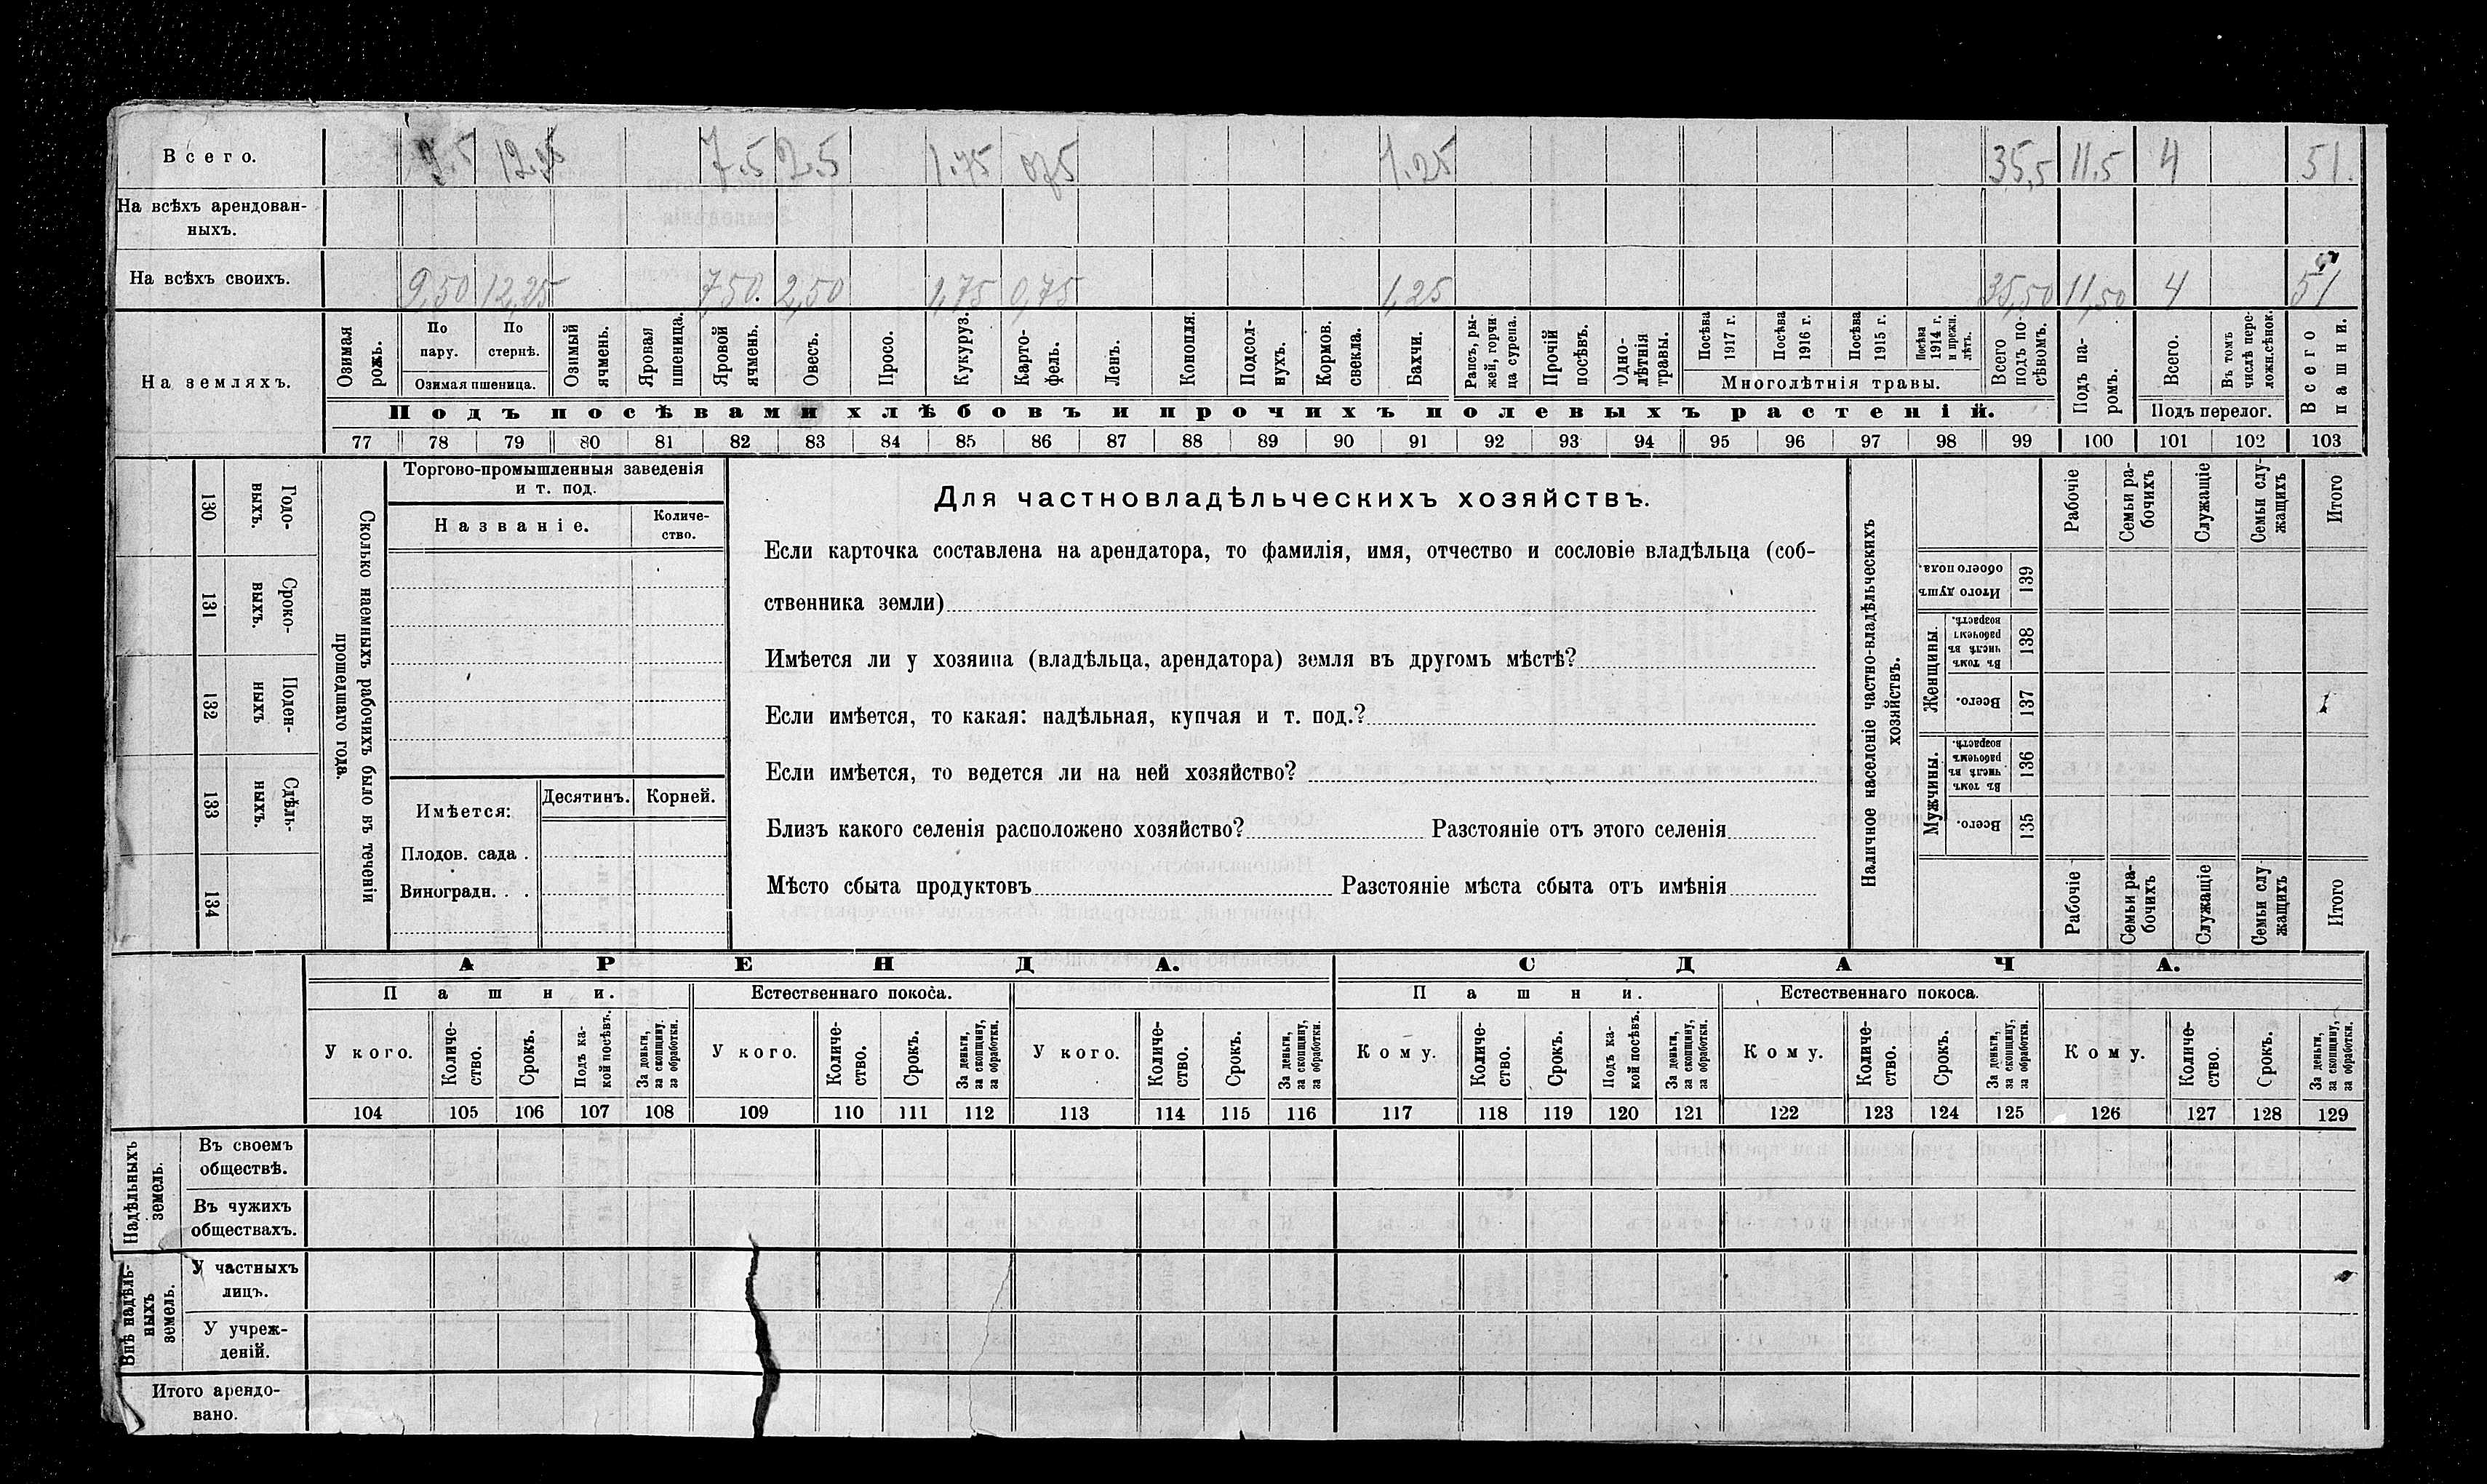 Всего. 9.5 12.25 7.5 2.5 1.75 075 1.25 35,5 11.5 4 51.
На всѣхъ арендован-
ныхъ.
На всѣхъ своихъ. 9,50 12,25 7 50. 2,50 1,75 0,75 1,25 35,50 11,50 4 51
На земляхъ.
Озимая рожь.
По пару.
По стернѣ.
Озимая пшеница.
Озимый ячмень.
Яровая пшеница.
Яровой ячмень.
Овесъ.
Просо.
Кукуруз.
Карто-
фель.
Ленъ.
Конопля.
Подсол-
нухъ.
Кормов. свекла.
Бахчи.
Рапсъ, ры-
жей, горчи
ца сурепа.
Прочій посѣвъ.
Одно-
лѣтнія
травы.
Посѣва 1917 г.
Посѣва 1916 г.
Посѣва 1915 г.
Посѣва 1914 г. и прежн. лѣтъ.
Многолѣтнія травы.
Всего подъ по-
сѣвомъ.
Подъ посѣвами хлѣбовъ и прочихъ полевыхъ растеній.
Подъ па-
ромъ.
Всего.
Въ томъ числѣ пере-
ложн.сѣнок.
Подъ перелог.
Всего пашни.
77 78 79 80 81 82 83 84 85 86 87 88 89 90 91 92 93 94 95 96 97 98 99 100 101 102 103
Сколько наемныхъ рабочихъ было въ теченіи
прошедшаго года.
Годо-
выхъ.
130
Сроко-
выхъ.
131
Поден-
ныхъ
132
Сдѣль-
ныхъ.
133
134
Торгово-промышленныя заведенія
и т. под.
Названіе.
Количе-
ство.
Имѣется:
Десятинъ.
Корней.
Плодов. сада .
Виноградн. . .
Для частновладѣльческихъ хозяйствъ.
Если карточка составлена на арендатора, то фамилія, имя, отчество и сословіе владѣльца (соб-
ственника земли)
Имѣется ли у хозяина (владѣльца, арендатора) земля въ другомъ мѣстѣ?
Если имѣется, то какая: надѣльная, купчая и т. под.?
Если имѣется, то ведется ли на ней хозяйство?
Близъ какого селенія расположено хозяйство? Разстояніе отъ этого селенія
Мѣсто сбыта продуктовъ Разстояніе мѣста сбыта отъ имѣнія
Наличное населеніе частно-владѣльческихъ
хозяйствъ.
Рабочіе
Семьи ра-
бочихъ
Служащіе
Семьи слу-
жащихъ
Итого
Итого душъ
обоего пола.
139
Женщины.
Въ томъ
числѣ въ
рабочемъ
возрастѣ.
138
Всего.
137
Мужчины.
Въ томъ
числѣ въ
рабочемъ
возрастѣ.
136
Всего.
135
Рабочіе
Семьи ра-
бочихъ
Служащіе
Семьи слу
жащихъ
Итого
АРЕНДА.
СДАЧА.
Пашни.
Естественнаго покоса.
Пашни.
Естественнаго покоса.
У кого.
Количе-
ство.
Срокъ.
Подъ ка-
кой посѣвъ.
За деньги,
за скопщину,
за обработки.
У кого.
Количе-
ство.
Срокъ.
За деньги,
за скопщину,
за обработки.
У кого.
Количе-
ство.
Срокъ.
За деньги,
за скопщину,
за обработки.
Кому.
Количе-
ство.
Срокъ.
Подъ ка-
кой посѣвъ.
За деньги,
за скопщину,
за обработки.
Кому.
Количе-
ство.
Срокъ.
За деньги,
за скопщину,
за обработки.
Кому.
Количе-
ство.
Срокъ.
За деньги,
за скопщину,
за обработки.
104 105 106 107 108 109 110 111 112 113 114 115 116 117 118 119 120 121 122 123 124 125 126 127 128 129
Надѣльныхъ
земель.
Въ своемъ
обществѣ.
Въ чужихъ
обществахъ.
Внѣ надѣль-
ныхъ
земель.
У частныхъ
лицъ.
У учреж-
деній.
Итого арендо-
вано.